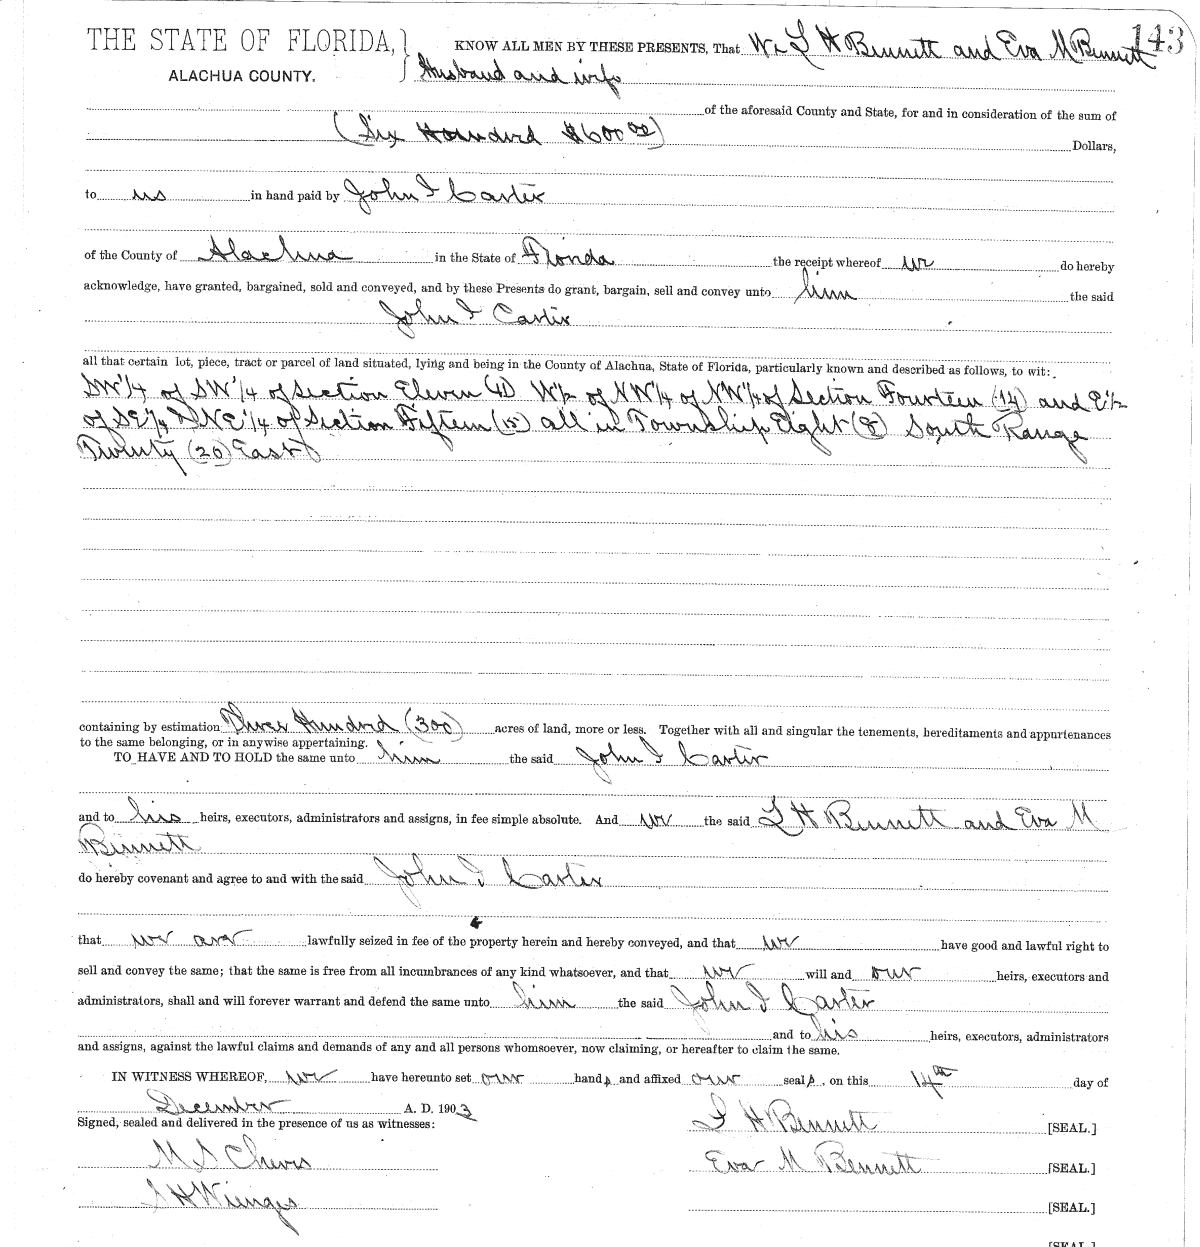 143
THE STATE OF FLORIDA, } KNOW ALL MEN BY THESE PRESENTS, That We L H Bennett and Eva M Bennett
ALACHUA COUNTY. Husband and wife
of the aforesaid County and State, for and in consideration of the sum of
(Six Hundred $600 00) Dollars,
to us in hand paid by John I Carter
of the County of Alachua in the State of Florida the receipt whereof we do hereby
acknowledge, have granted, bargained, sold and conveyed, and by these Presents do grant, bargain, sell and convey unto him the said
John I Carter
all that certain lot, piece, tract or parcel of land situated, lying and being in the County of Alachua, State of Florida, particularly known and described as follows, to wit:
SW¼ of SW¼ of Section Eleven (11) W½ of NW¼ of NW¼ of Section Fourteen (14) and E½
of SE¼ & NE¼ of Section Fifteen (15) all in Township Eight (8) South Range
Twenty (20) East
containing by estimation Three Hundred (300) acres of land, more or less. Together with all and singular the tenements, hereditaments and appurtenances
to the same belonging, or in anywise appertaining.
TO HAVE AND TO HOLD the same unto him the said John I Carter
and to his heirs, executors, administrators and assigns, in fee simple absolute. And we the said L H Bennett and Eva M
Bennett
do hereby covenant and agree to and with the said John I Carter
that we are lawfully seized in fee of the property herein and hereby conveyed, and that we have good and lawful right to
sell and convey the same; that the same is free from all incumbrances of any kind whatsoever, and that we will and our heirs, executors and
administrators, shall and will forever warrant and defend the same unto him the said John I Carter
and to his heirs, executors, administrators
and assigns, against the lawful claims and demands of any and all persons whomsoever, now claiming, or hereafter to claim the same.
IN WITNESS WHEREOF, we have hereunto set our hands and affixed our seals, on this 14th day of
December A. D. 1903
Signed, sealed and delivered in the presence of us as witnesses: L H Bennett [SEAL.]
M S Cheves Eva M Bennett [SEAL.]
S H Wienges [SEAL.]
[SEAL.]